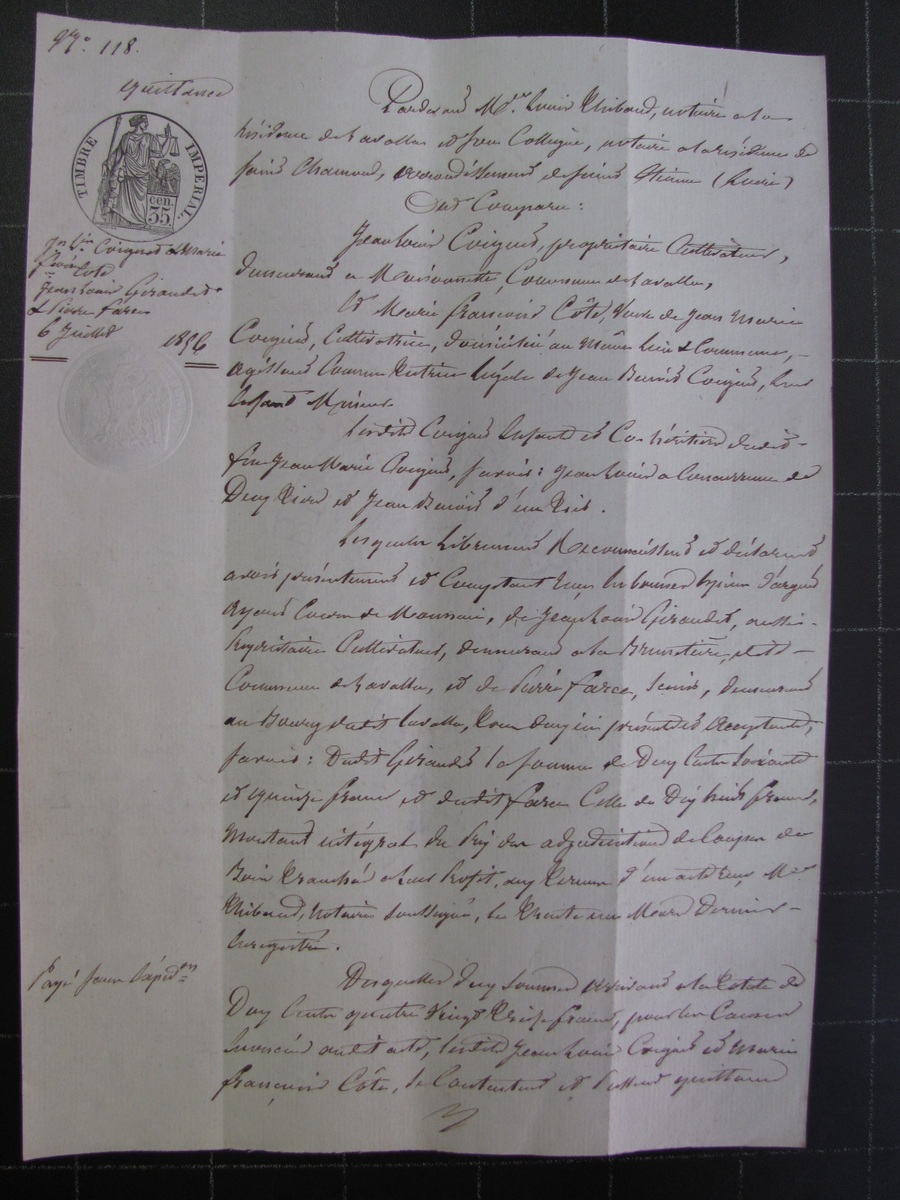 N.° 118.
quittance
TIMBRE IMPÉRIAL.
35 cen.
Jn Ls Coignet & Marie
Frçoise Côte
Jean Louis Giraudet
& Pierre farce
6 Juillet 1856
Pardevant Me Louis Thibaud, notaire à la
résidence de Lavalla et son Collègue, notaire à la résidence de
saint Chamond, arrondissement de saint Etienne (Loire)
Ont Comparu :
Jean Louis Coignet, propriétaire Cultivateur,
demeurant à Maisonnette, Commune de Lavalla,
Et Marie françoise Côte, Veuve de Jean Marie
Coignet, Cultivatrice, domiciliée au Même lieu & Commune,
agissant Comme tutrice légale de Jean Benoit Coignet, leur
Enfant Mineur.
Lesdits Coignet Enfants et Co-héritiers dudit
feu Jean Marie Coignet, savoir : Jean Louis à Concurrence de
Deux tiers et Jean Benoit d'un tiers.
Lesquels librement Reconnaissent et déclarent
avoir présentement et Comptant reçu en bonnes espèces d'argent
ayant Cours de Monnaie, de Jean Louis Giraudet, aussi
Propriétaire Cultivateur, demeurant à la Brunetière, dite
Commune de Lavalla, et de Pierre farce, demeurant
au Bourg dudit Lavalla, tous deux ici présents et acceptants,
savoir : Dudit Giraudet la somme de Deux Cents soixante
et quinze francs et dudit farce Celle de Dix huit francs,
Montant intégral du Prix des adjudications de Coupes de
Bois tranchées à leur Profit, aux termes d'un acte reçu Me
Thibaud, Notaire soussigné, le trente un Mars Dernier
Enregistré.
Payé pour l'expéd.on
Desquelles deux sommes arrivant à la totale de
Deux Cents quatre Vingt treize francs, pour les Causes
énoncées audit acte, lesdits Jean Louis Coignet et Marie
françoise Côte, se Contentent et Passent quittance